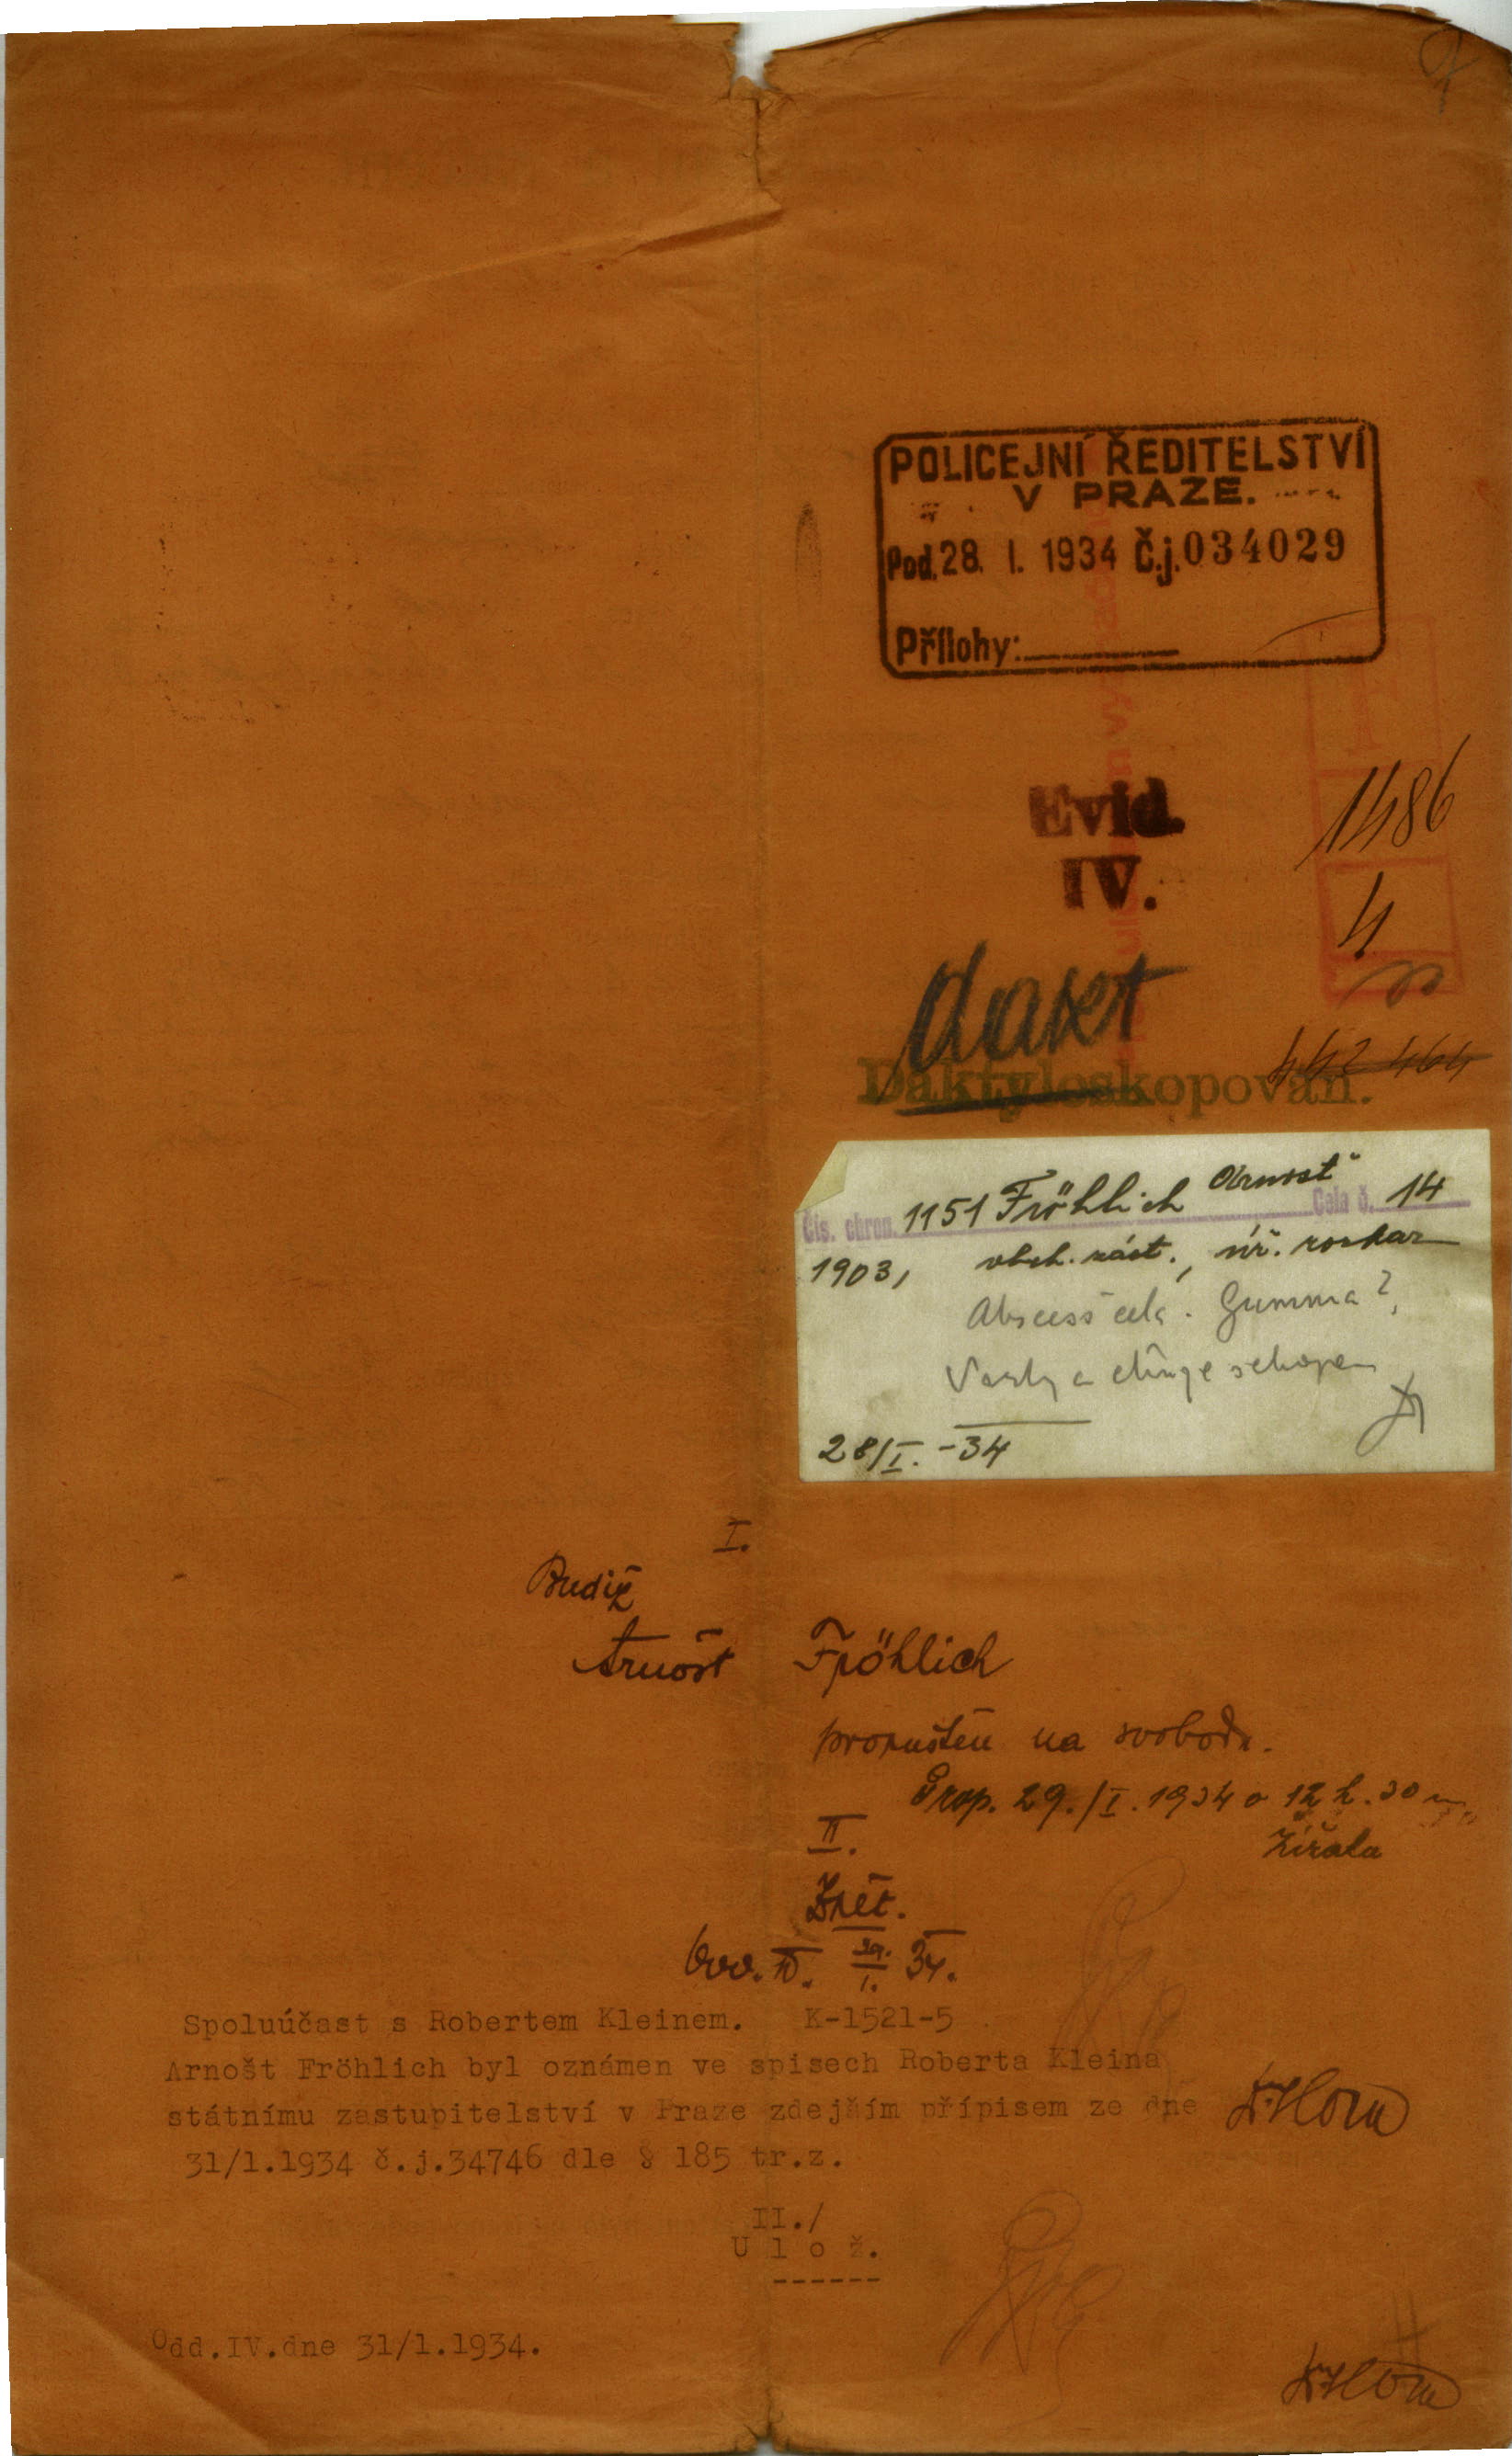 POLICEJNÍ ŘEDITELSTVÍ
V PRAZE.
Pod. 28. I. 1934 Č.j. 034029
Přílohy:
Evid.
IV.
1486
4
442 464
Daktyloskopován.
Čís. chron. 1151 Fröhlich Arnošt Cela č. 14
1903, obch. zást.,
Abscess čela. Gumma?
28/I. -34
I.
Budiž
Arnošt Fröhlich
propuštěn na svobodu.
Prop. 29./I. 1934 o 12 h. 30 m.
II.
Zpět.
29. I. 34.
Spoluúčast s Robertem Kleinem. K-1521-5
Arnošt Fröhlich byl oznámen ve spisech Roberta Kleina
státnímu zastupitelství v Praze zdejším přípisem ze dne
31/1.1934 č.j.34746 dle § 185 tr.z.
II./
U l o ž.
------
Odd.IV.dne 31/1.1934.